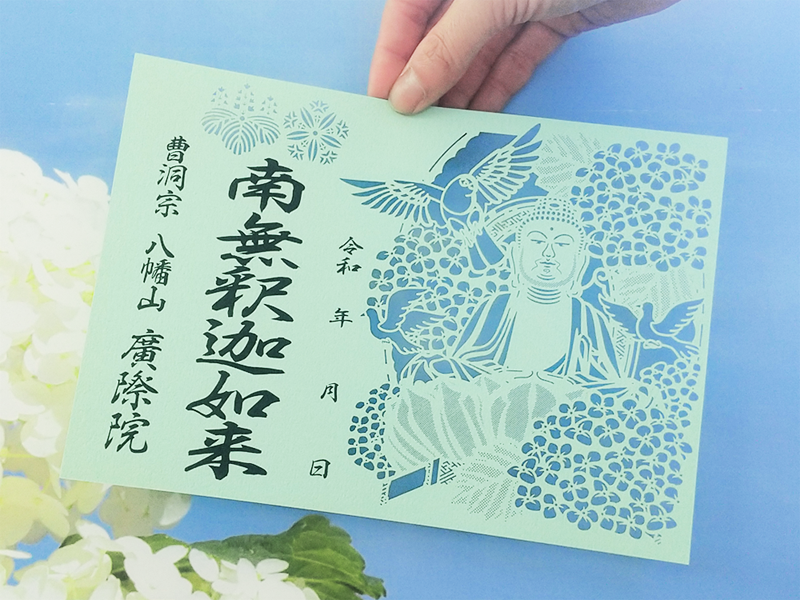 令和 年 月 日
南無釈迦如来
曹洞宗 八幡山 廣際院